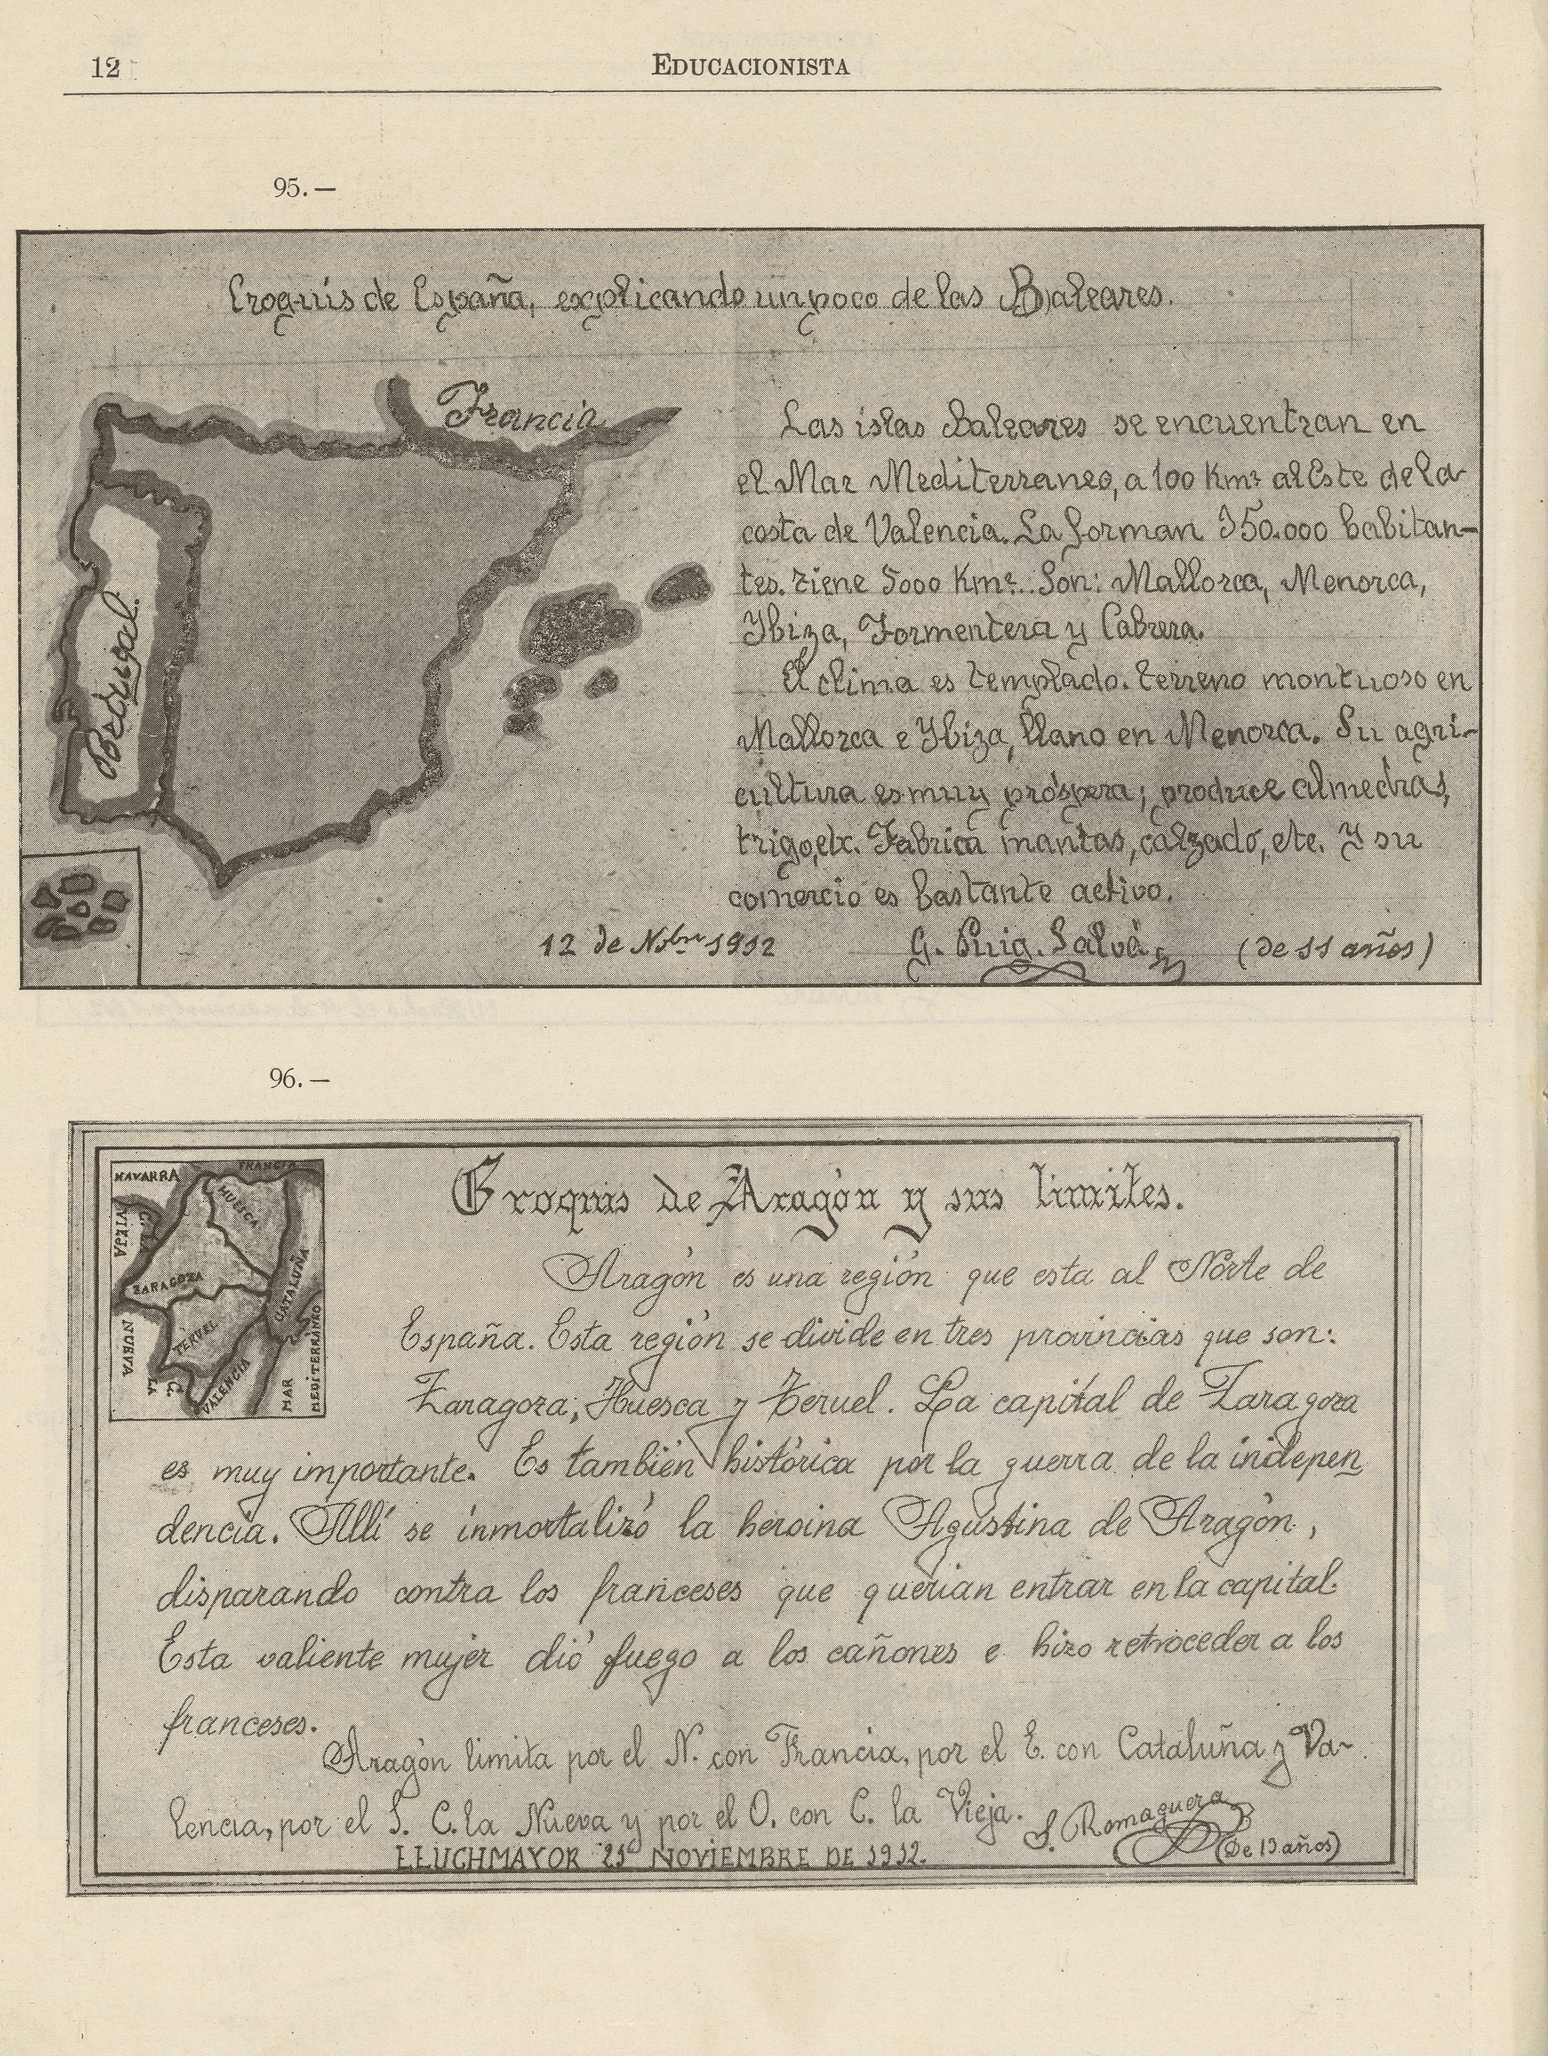 12
EDUCACIONISTA
95.—
Croquis de España, explicando un poco de las Baleares.
Francia
Portugal.
Las islas Baleares se encuentran en
el Mar Mediterraneo, a 100 Kms al Este de la
costa de Valencia. La forman 350.000 habitan-
tes. tiene 5000 Kms. Son: Mallorca, Menorca,
Ybiza, Formentera y Cabrera.
El clima es templado. terreno montuoso en
Mallorca e Ybiza, llano en Menorca. Su agri-
cultura es muy próspera; produce almedras,
trigo, etc. Fabrica mantas, calzado, etc. Y su
comercio es bastante activo.
12 de Nbre 1912
G. Puig. Salvá
(de 11 años)
96.—
NAVARRA
FRANCIA
HUESCA
C. LA
VIEJA
ZARAGOZA
CATALUÑA
TERUEL
NUEVA
C.
LA
VALENCIA
MAR
MEDITERRÁNEO
Croquis de Aragón y sus limites.
Aragón es una región que esta al Norte de
España. Esta región se divide en tres provincias que son:
Zaragoza, Huesca y Teruel. La capital de Zaragoza
es muy importante. Es también histórica por la guerra de la indepen
dencia. Allí se inmortalizó la heroina Agustina de Aragón,
disparando contra los franceses que querian entrar en la capital.
Esta valiente mujer dió fuego a los cañones e hizo retroceder a los
franceses.
Aragón limita por el N. con Francia, por el E. con Cataluña y Va-
lencia, por el S. C. la Nueva y por el O. con C. la Vieja.
S. Romaguera
(De 13 años)
LLUCHMAYOR 25 NOVIEMBRE DE 1912.